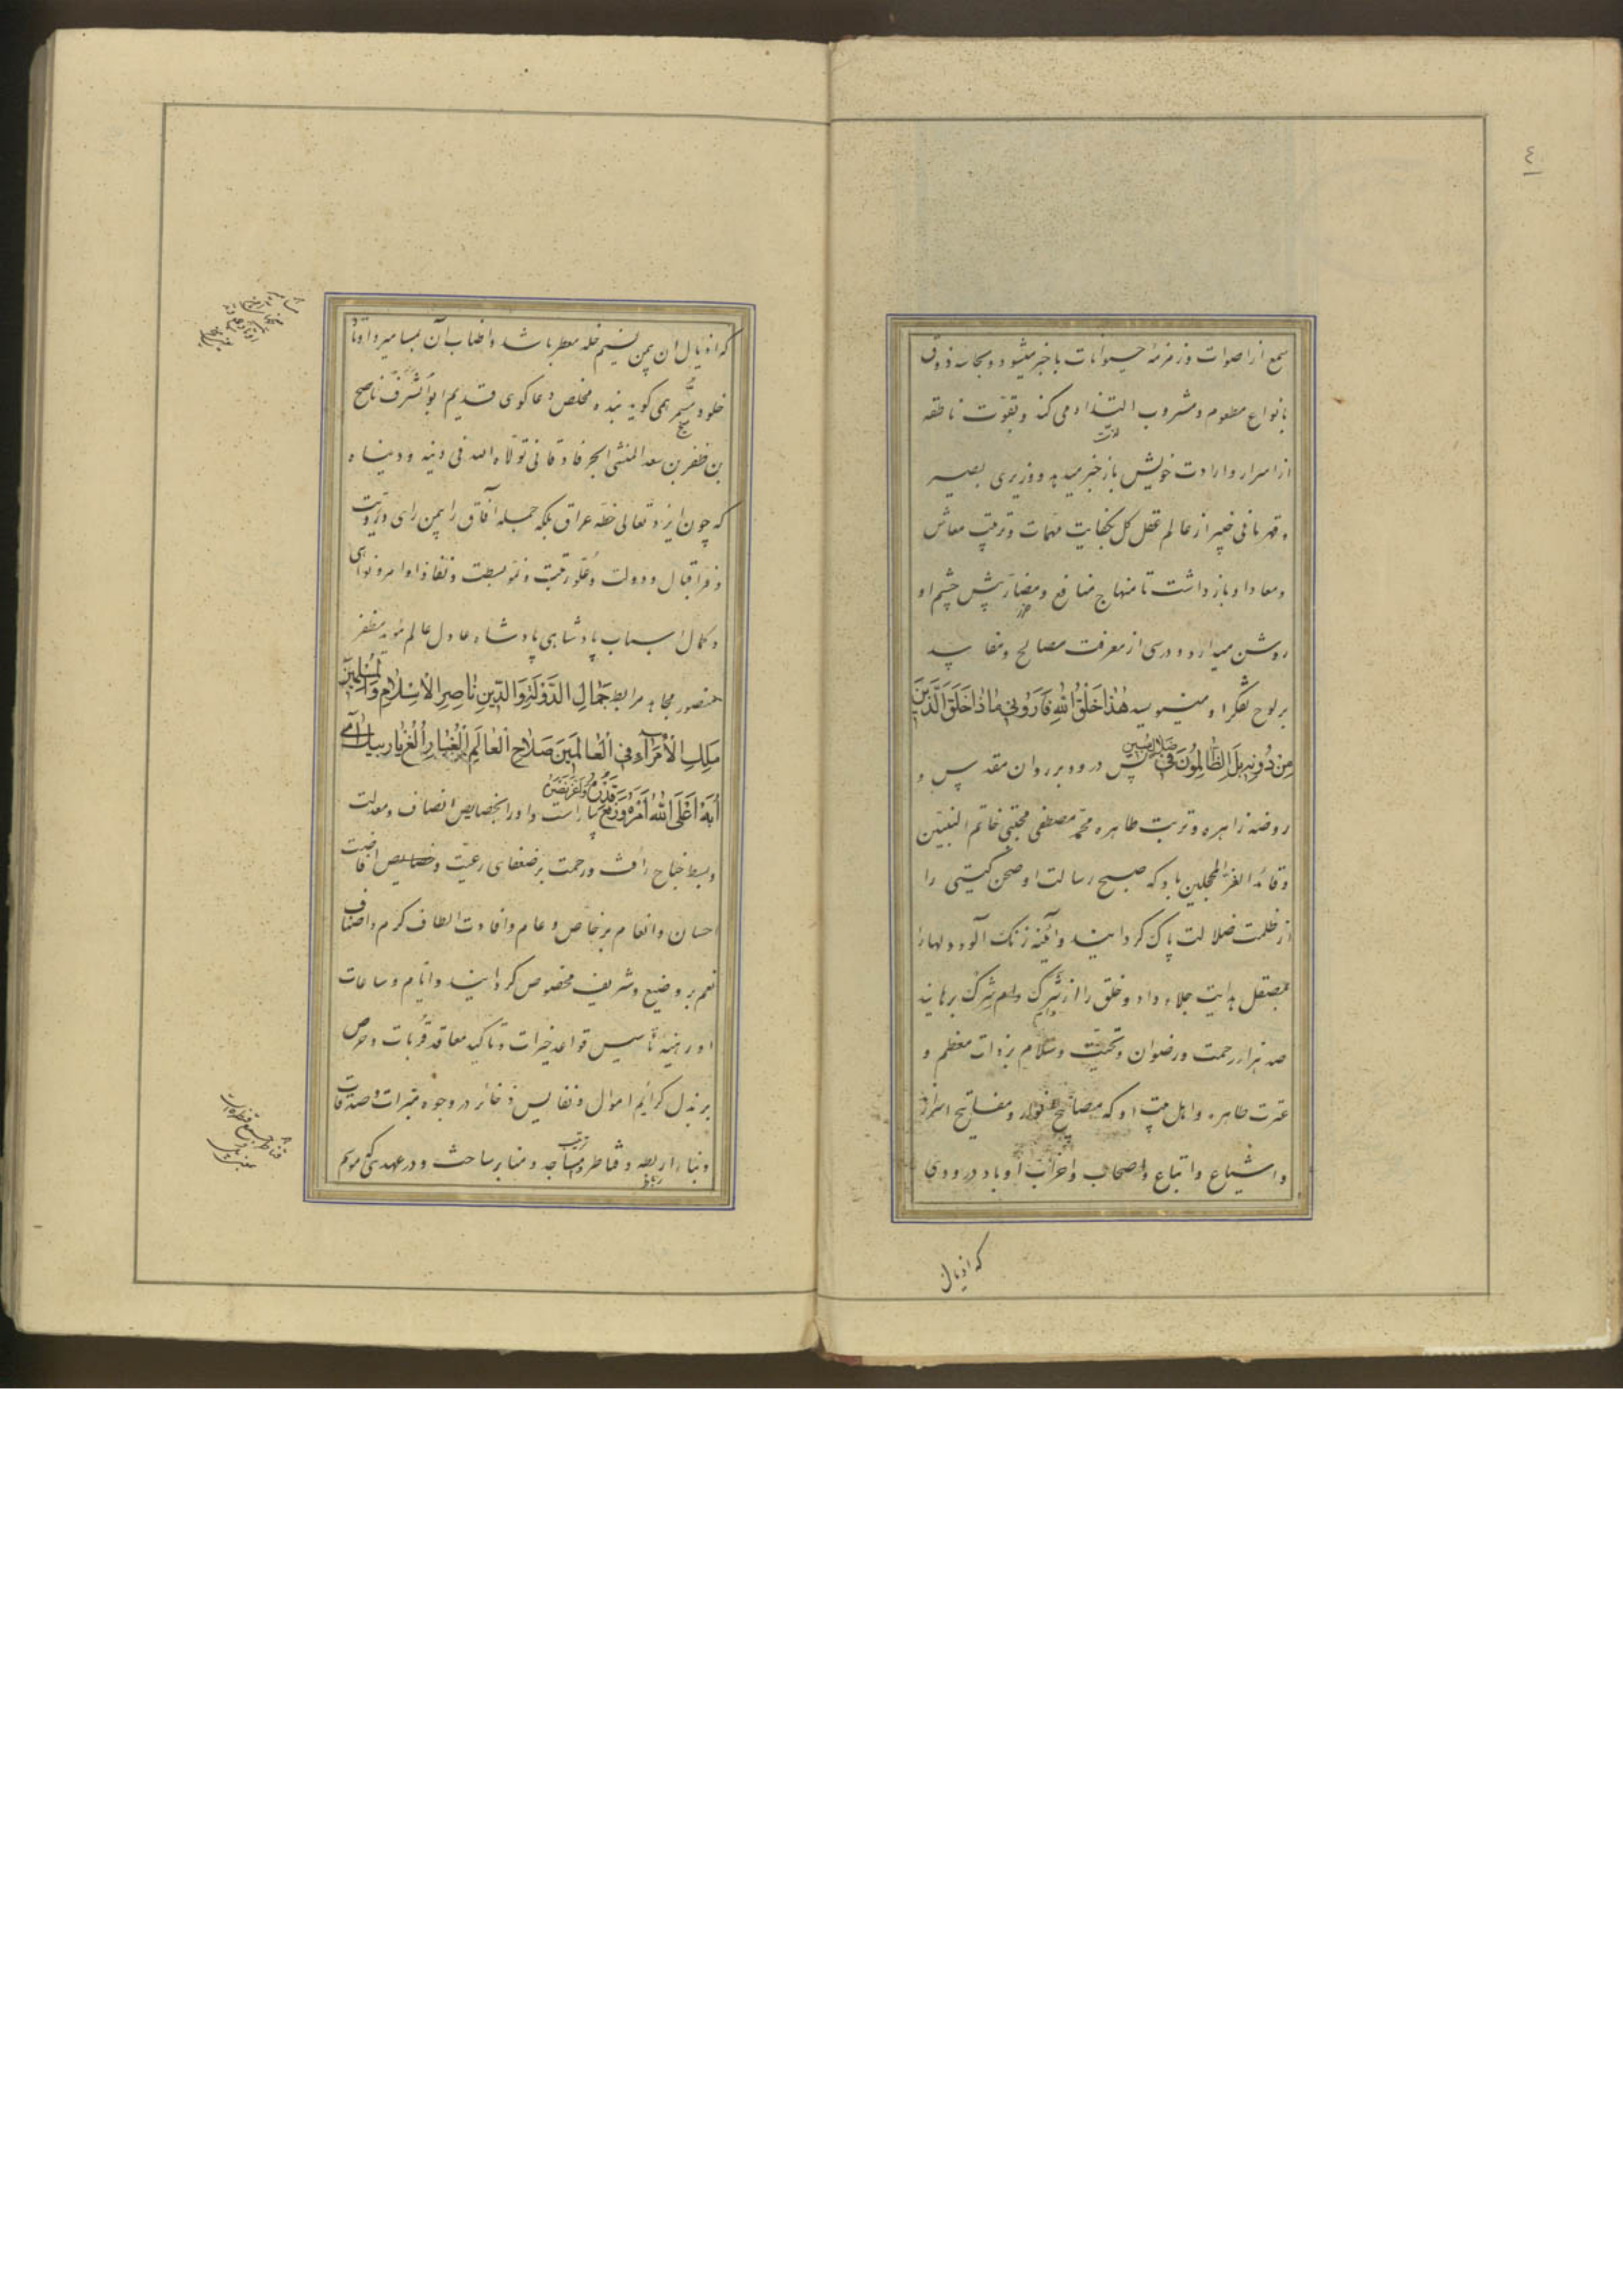 ٤
سمع از اصوات و زمزمه حیوانات با خبر میشود و بحاسه ذوق
بانواع مطعوم و مشروب التذاذ می کند و بقوت ناطقه
از اسرار و ارادت خویش باز خبر میدهد و وزیری بصیر
و قهرمانی خبیر از عالم عقل کل بکفایت مهمات و ترتیب معاش
و معاد او باز داشت تا منهاج منافع و مضار پیش چشم او
روشن میدارد و درسی از معرفت مصالح و مفاسد
بر لوح تفکر او مینویسد هٰذَا خَلْقُ اللهِ فَاَرُوني مَاذَا خَلَقَ الَّذينَ
مِن دُونِهِ بَلِ الظَّالِمُونَ في ضَلَالٍ مُبين پس درود بر روان مقدس و
روضه زاهره و تربت طاهره محمد مصطفی مجتبی خاتم النبیین
و قائد الغر المحجلین باد که صبح رسالت او صحن گیتی را
از ظلمت ضلالت پاک گردانید و آئینه زنگ آلود دلها را
بمصقل هدایت جلاء داد و خلق را از شرک و دام شرک برهانید
صد هزار رحمت و رضوان و تحیت و سلام بر ذات معظم و
عترت طاهره و اهل بیت او که مصابیح و مفاتیح اسرار
و اشیاع و اتباع و اصحاب و احزاب او باد درودی
که اذیال
که اذیال آن بمن نسیم خلد معطر باشد و اطناب آن بمسامیر و اوتاد
خلود همی گوید بنده مخلص و دعاگوی قدیم ابو الشرف ناصح
بن ظفر بن سعد المنشی الجرفادقانی تولاه الله فی دینه و دنیاه
که چون ایزد تعالی خطه عراق بلکه جمله آفاق را بیمن رای و رویت
و فر اقبال و دولت و علو رتبت و نمو بسطت و نفاذ اوامر و نواهی
و کمال اسباب پادشاهی پادشاه عادل عالم مؤید مظفر
منصور مجاهد مرابط جَمَالِ الدَّوْلَةِ وَالدّينِ نَاصِرِ الْاِسْلَامِ وَالْمُسْلِمينَ
مَلِكِ الْاُمَرَآءِ فِي الْعَالَمينَ صَلَاحِ الْعَالَمِ اُلُغْ بَارْبَكْ آی
اَبَهْ اَعْلَى اللهُ اَمْرَهُ وَرَفَعَ قَدْرَهُ بیاراست و او را بخصایص انصاف و معدلت
و بسط جناح رأفت و رحمت بر ضعفای رعیت و خصایص افاضت
احسان و انعام بر خاص و عام و افادت الطاف کرم و اصناف
نعم بر وضیع و شریف مخصوص گردانید و ایام و ساعات
او رهینه تأسیس قواعد خیرات و تاکید معاقد قربات و حرص
بر بذل کرائم اموال و نفایس ذخائر در وجوه مبرات و صدقات
و بناء اربطه و قناطر و مساجد و منابر ساخت و در عهدی که موسم